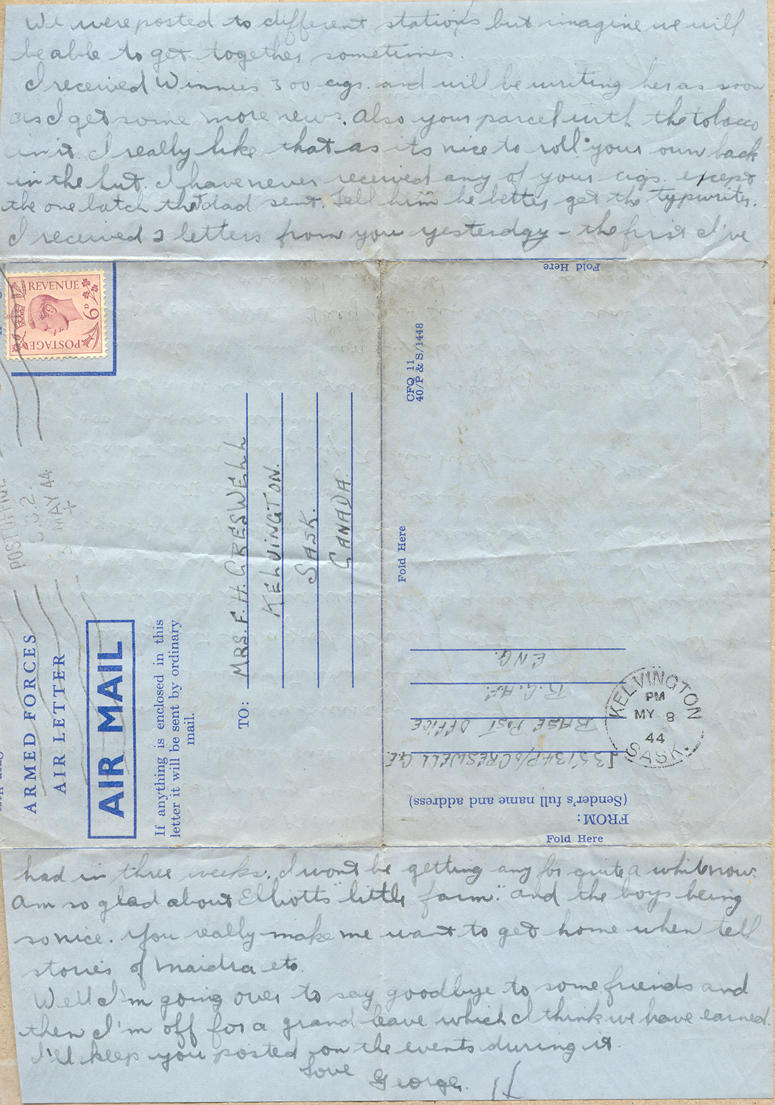 We were posted to different stations but imagine we will
be able to get together sometimes.
I received Winnies 300 cigs. and will be writing her as soon
as I get some more news. Also your parcel with the tobacco
in it. I really like that as its nice to roll your own back
in the hut. I have never received any of your cigs. except
the one batch that dad sent. Tell him he better get the typwriter.
I received 2 letters from you yesterday - the first I've
Fold Here
REVENUE
6D
POSTAGE
POST OFFICE
MAY 44
ARMED FORCES
AIR LETTER
AIR MAIL
If anything is enclosed in this
letter it will be sent by ordinary
mail.
TO:
MRS. F. H. CRESWELL
KELVINGTON.
SASK.
CANADA.
CFQ 11
40/P & S/1448
Fold Here
FROM:
(Sender's full name and address)
J35134 P/O CRESWELL G.E.
BASE POST OFFICE
R.C.A.F.
ENG.
KELVINGTON
PM
MY 8
44
SASK.
Fold Here
had in three weeks. I wont be getting any for quite a while now.
Am so glad about Elliotts "little farm." and the boys being
so nice. You really make me want to get home when tell
stories of Maidra etc.
Well I'm going over to say goodbye to some friends and
then I'm off for a grand leave which I think we have earned.
I'll keep you posted on the events during it.
Love
George.